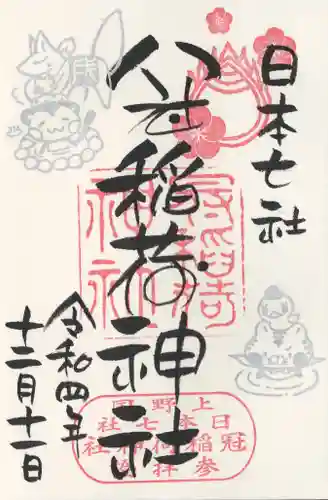 日本七社
冠稲荷神社
令和四年
十二月十一日
上野国
日本七社
冠稲荷神社
参拝